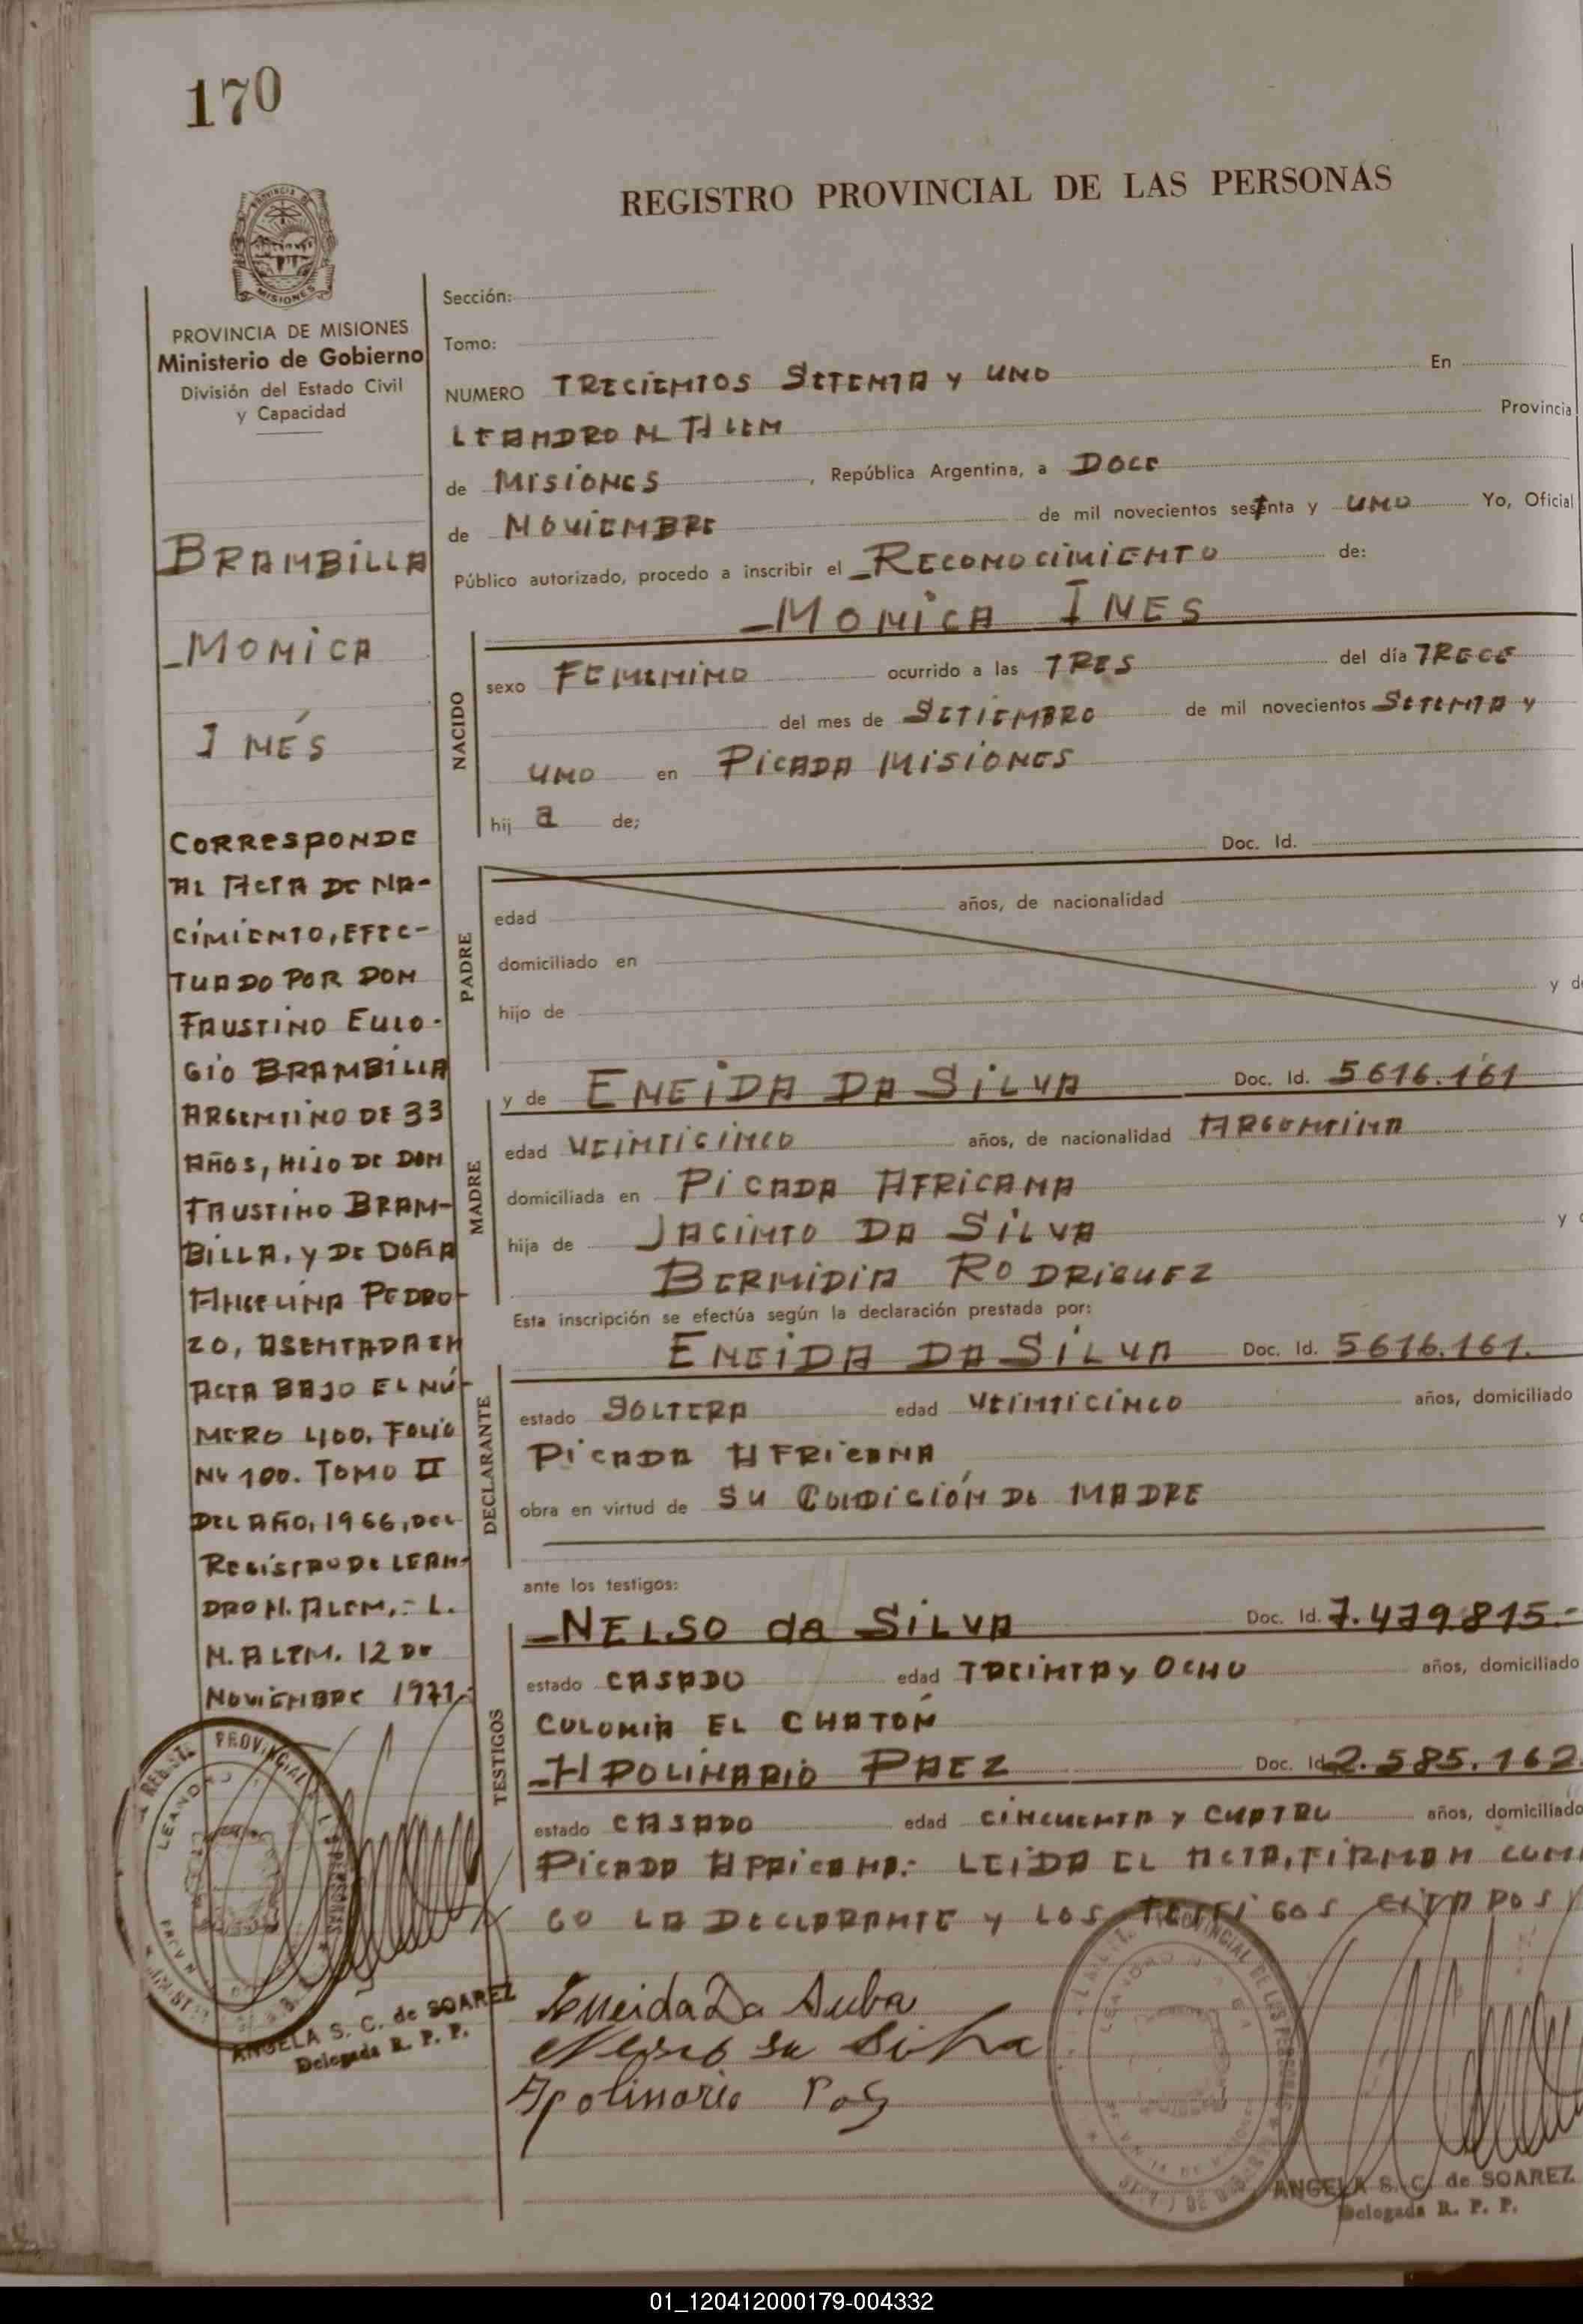 170
REGISTRO PROVINCIAL DE LAS PERSONAS
PROVINCIA DE MISIONES
Ministerio de Gobierno
División del Estado Civil
y Capacidad
BRAMBILLA
MONICA
INÉS
CORRESPONDE
AL ACTA DE NA-
CIMIENTO, EFEC-
TUADO POR DON
FAUSTINO EULO-
GIO BRAMBILLA
ARGENTINO DE 33
AÑOS, HIJO DE DON
FAUSTINO BRAM-
BILLA, Y DE DOÑA
ANGELINA PEDRO-
ZO, ASENTADA EN
ACTA BAJO EL NÚ-
MERO 400, FOLIO
Nº 100. TOMO II
DEL AÑO, 1966, DEL
REGISTRO DE LEAN-
DRO N. ALEM.- L.
N. ALEM. 12 DE
NOVIEMBRE 1971.-
ANGELA S. C. de SOAREZ
Delegada R. P. P.
Sección:
Tomo:
NUMERO TRECIENTOS SETENTA Y UNO En
LEANDRO N. ALEM Provincia
de MISIONES, República Argentina, a DOCE
de NOVIEMBRE de mil novecientos setenta y UNO Yo, Oficial
Público autorizado, procedo a inscribir el RECONOCIMIENTO de:
MONICA INES
NACIDO
sexo FEMENINO ocurrido a las TRES del día TRECE
del mes de SETIEMBRE de mil novecientos SETENTA Y
UNO en PICADA MISIONES
hij a de;
Doc. Id.
PADRE
edad años, de nacionalidad
domiciliado en
hijo de y d
MADRE
y de ENEIDA DA SILVA Doc. Id. 5616.161
edad VEINTICINCO años, de nacionalidad ARGENTINA
domiciliada en PICADA AFRICANA
hija de JACINTO DA SILVA y
BERMIDIA RODRIGUEZ
Esta inscripción se efectúa según la declaración prestada por:
DECLARANTE
ENEIDA DA SILVA Doc. Id. 5616.161.
estado SOLTERA edad VEINTICINCO años, domiciliado
PICADA AFRICANA
obra en virtud de SU CONDICIÓN DE MADRE
ante los testigos:
TESTIGOS
NELSO da SILVA Doc. Id. 7.479.815.-
estado CASADO edad TREINTA y OCHO años, domiciliado
COLONIA EL CHATON
APOLINARIO PAEZ Doc. Id. 2.585.162.
estado CASADO edad CINCUENTA Y CUATRO años, domiciliado
PICADA AFRICANA.- LEIDA EL ACTA, FIRMAN CONMI
GO LA DECLARANTE y LOS TESTIGOS CITADOS
Eneida Da Silva
Nelso da Silva
Apolinario
ANGELA S. C. de SOAREZ
Delegada R. P. P.
01_120412000179-004332